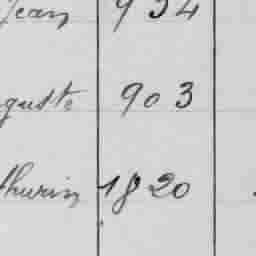 Jean 954
guste 903
thurin 1820